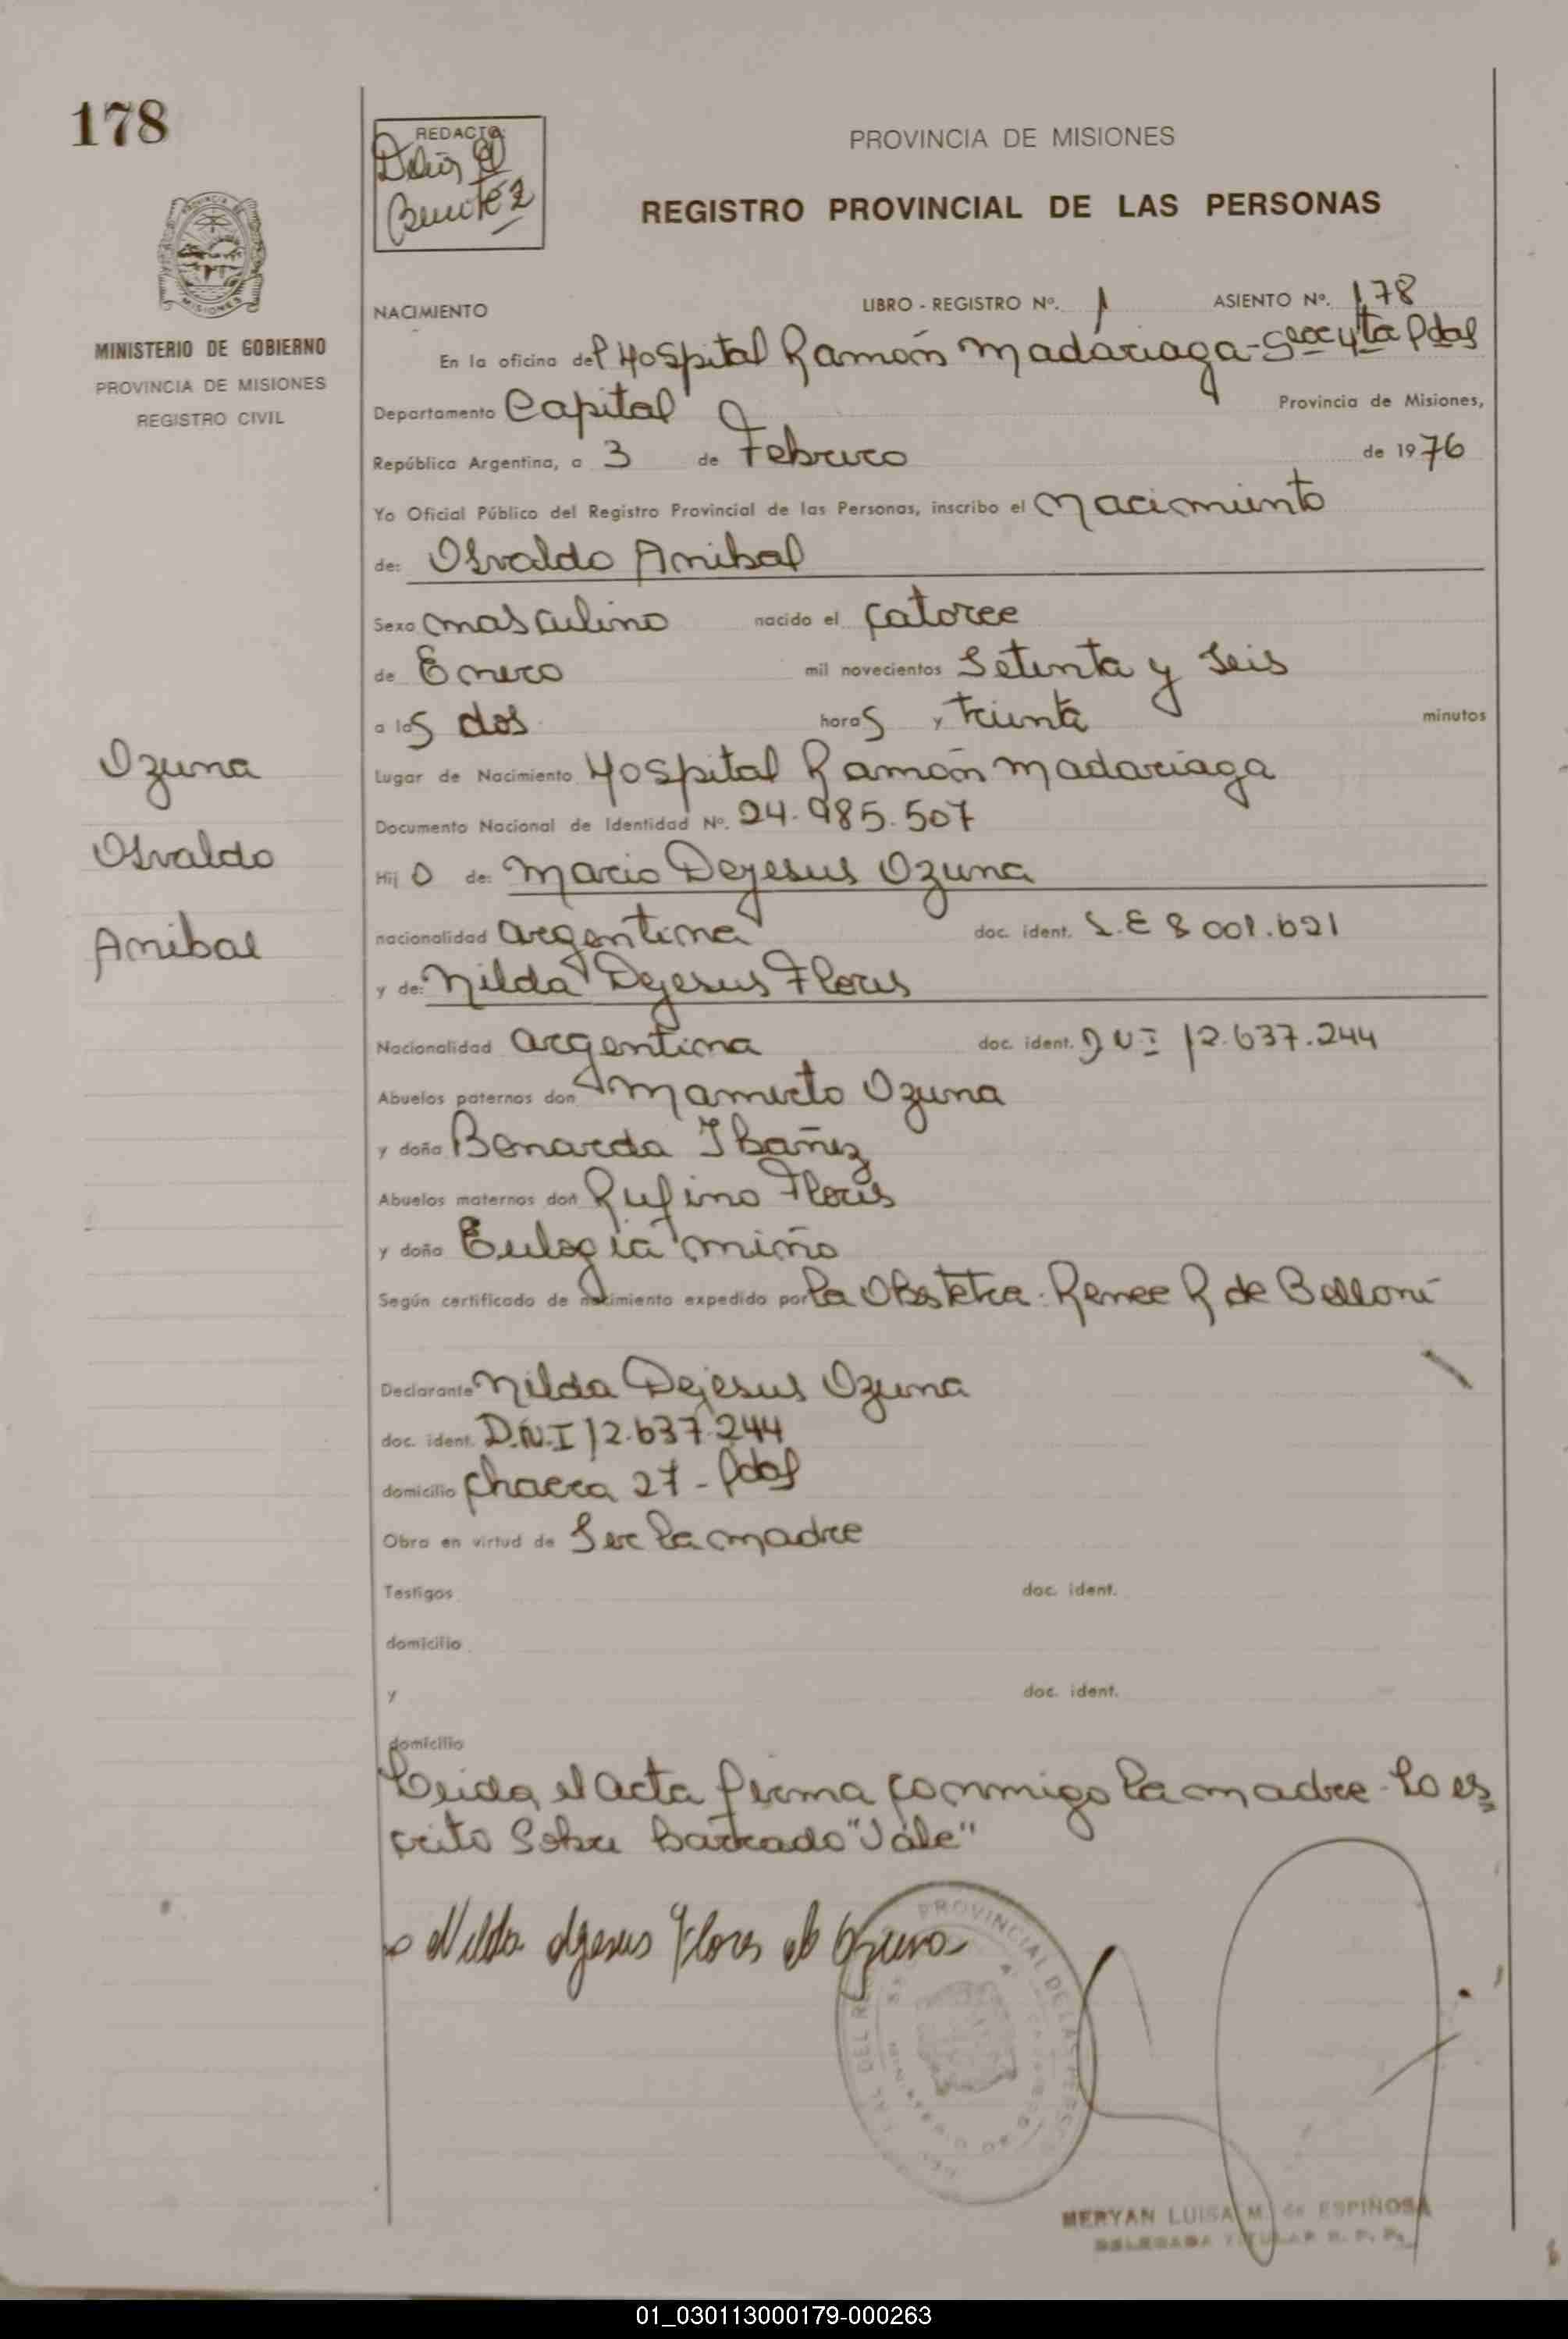 178
REDACTO:
Delia
Benitez
PROVINCIA DE MISIONES
REGISTRO PROVINCIAL DE LAS PERSONAS
MISIONES
MINISTERIO DE GOBIERNO
PROVINCIA DE MISIONES
REGISTRO CIVIL
NACIMIENTO LIBRO - REGISTRO Nº. 1 ASIENTO Nº. 178
En la oficina del Hospital Ramón Madariaga - Pdas
Departamento Capital Provincia de Misiones,
República Argentina, a 3 de Febrero de 1976
Yo Oficial Público del Registro Provincial de las Personas, inscribo el Nacimiento
de: Osvaldo Anibal
Sexo masculino nacido el catorce
de Enero mil novecientos Setenta y Seis
a las dos horas y treinta minutos
Lugar de Nacimiento Hospital Ramón Madariaga
Documento Nacional de Identidad Nº. 24.985.507
Hijo de: Marcio Dejesus Ozuna
nacionalidad argentina doc. ident. L.E 8 001.621
y de: Nilda Dejesus Flores
Nacionalidad argentina doc. ident. DNI 12.637.244
Abuelos paternos don Mamerto Ozuna
y doña Benarda Ibañez
Abuelos maternos don Rufino Flores
y doña Eulogia Miño
Según certificado de nacimiento expedido por la Obstetra. Renee R de Belloni
Declarante Nilda Dejesus Ozuna
doc. ident. D.N.I 12.637.244
domicilio Chacra 27 - Pdas
Obra en virtud de Ser la madre
Testigos doc. ident.
domicilio
y doc. ident.
domicilio
Leida el acta firma conmigo la madre - Lo es
crito Sobre Barrado "Vale"
Nilda dejesus Flores de Ozuna
Ozuna
Osvaldo
Anibal
PROVINCIAL DE LAS PERSONAS
MERYAN LUISA M. de ESPINOSA
DELEGADA TITULAR R. P. P.
01_030113000179-000263